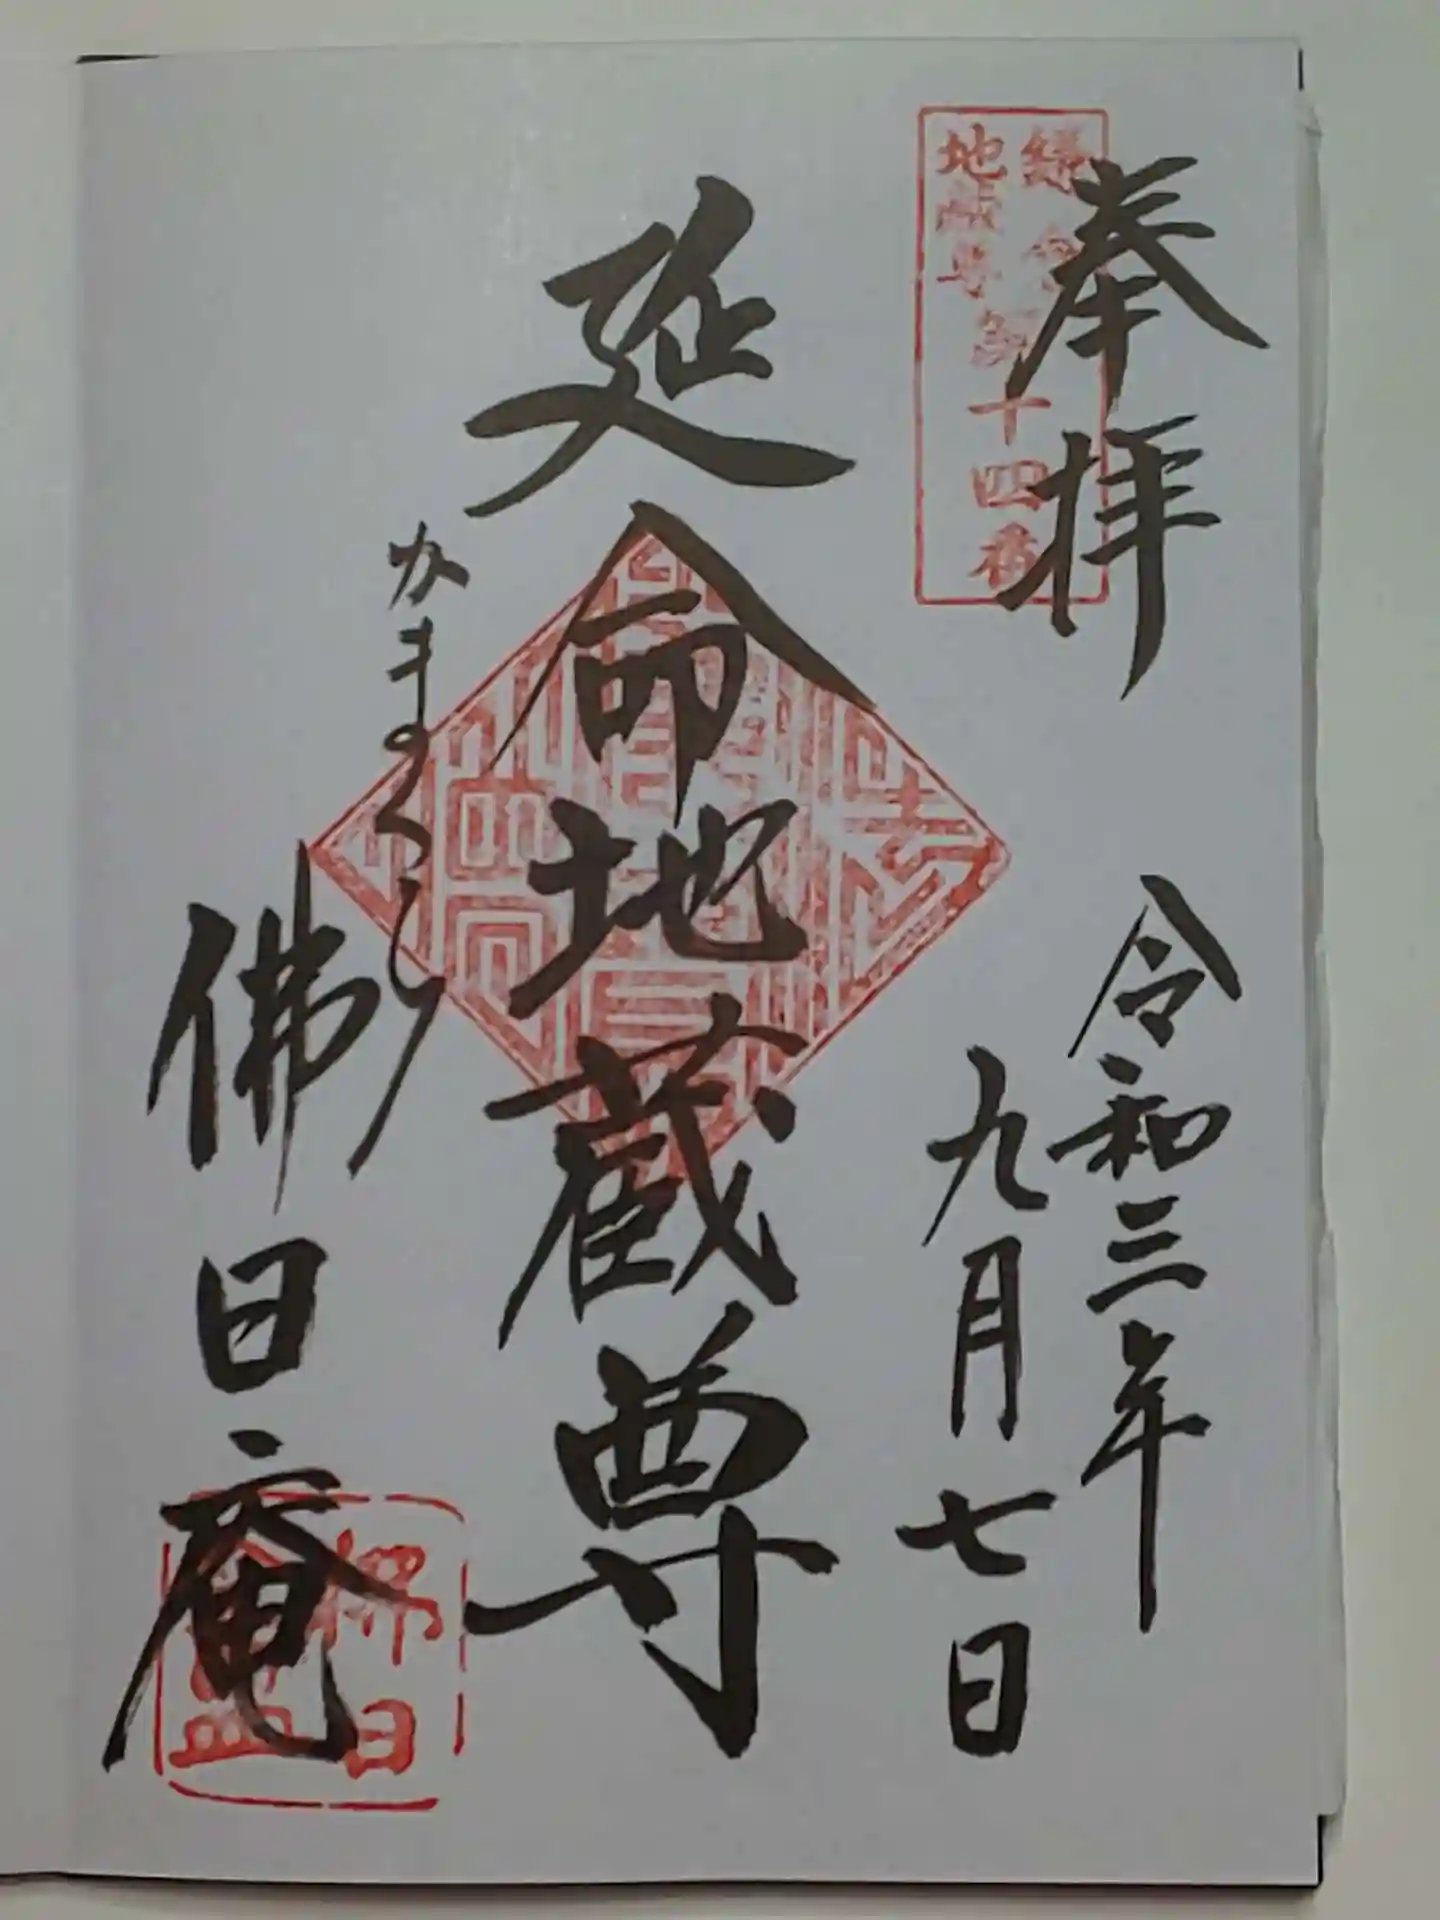 奉拝
令和三年
九月七日
鎌倉
地蔵尊第
十四番
延命地蔵尊
かまくら
佛日庵
佛日